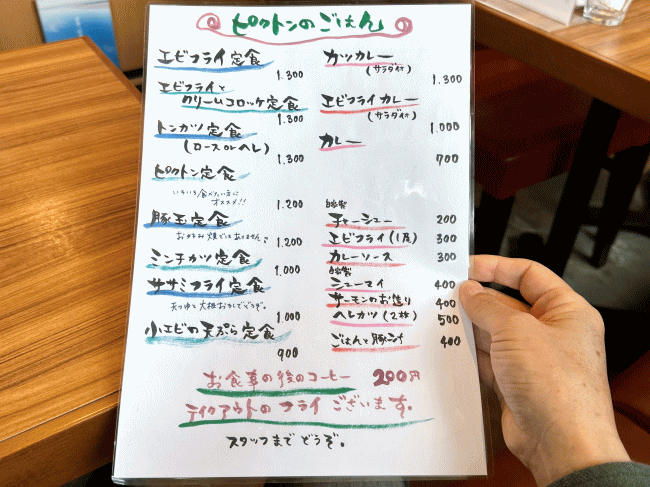 ピクトンのごはん
エビフライ定食
1.300
エビフライと
クリームコロッケ定食
1.300
トンカツ定食
(ロース or ヘレ)
1.300
ピクトン定食
いろいろ食べたい方に
オススメ!!
1.200
豚玉定食
お好み焼ではありません。
1.200
ミンチカツ定食
1.000
ササミフライ定食
天つゆと大根おろしでどうぞ。
1.000
小エビの天ぷら定食
900
カツカレー
(サラダ付)
1.300
エビフライカレー
(サラダ付)
1.000
カレー
700
自家製
チャーシュー 200
エビフライ(1尾) 300
カレーソース 300
自家製
シューマイ 400
サーモンのお造り 400
ヘレカツ(2枚) 500
ごはんと豚汁 400
お食事の後のコーヒー 200円
テイクアウトのフライございます。
スタッフまでどうぞ。